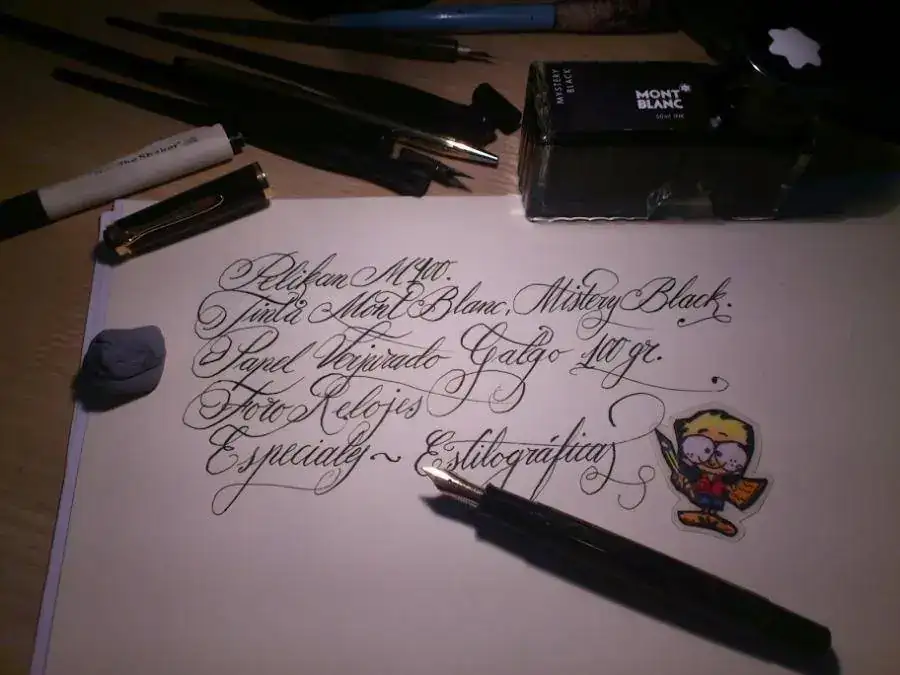 MYSTERY BLACK
MONT BLANC
The Shaker
Pelikan M400.
Tinta Mont Blanc, Mistery Black.
Papel Verjurado Galgo 100 gr.
Foro Relojes
Especiales ~ Estilográficas